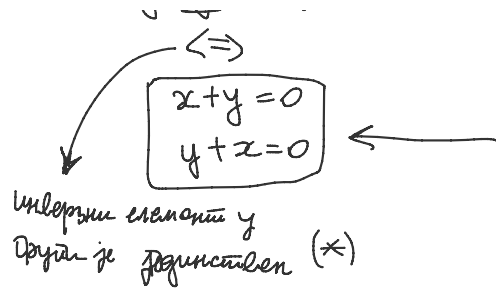 <=>
x+y=0
y+x=0
инверзни елемент у
групи је јединствен (*)